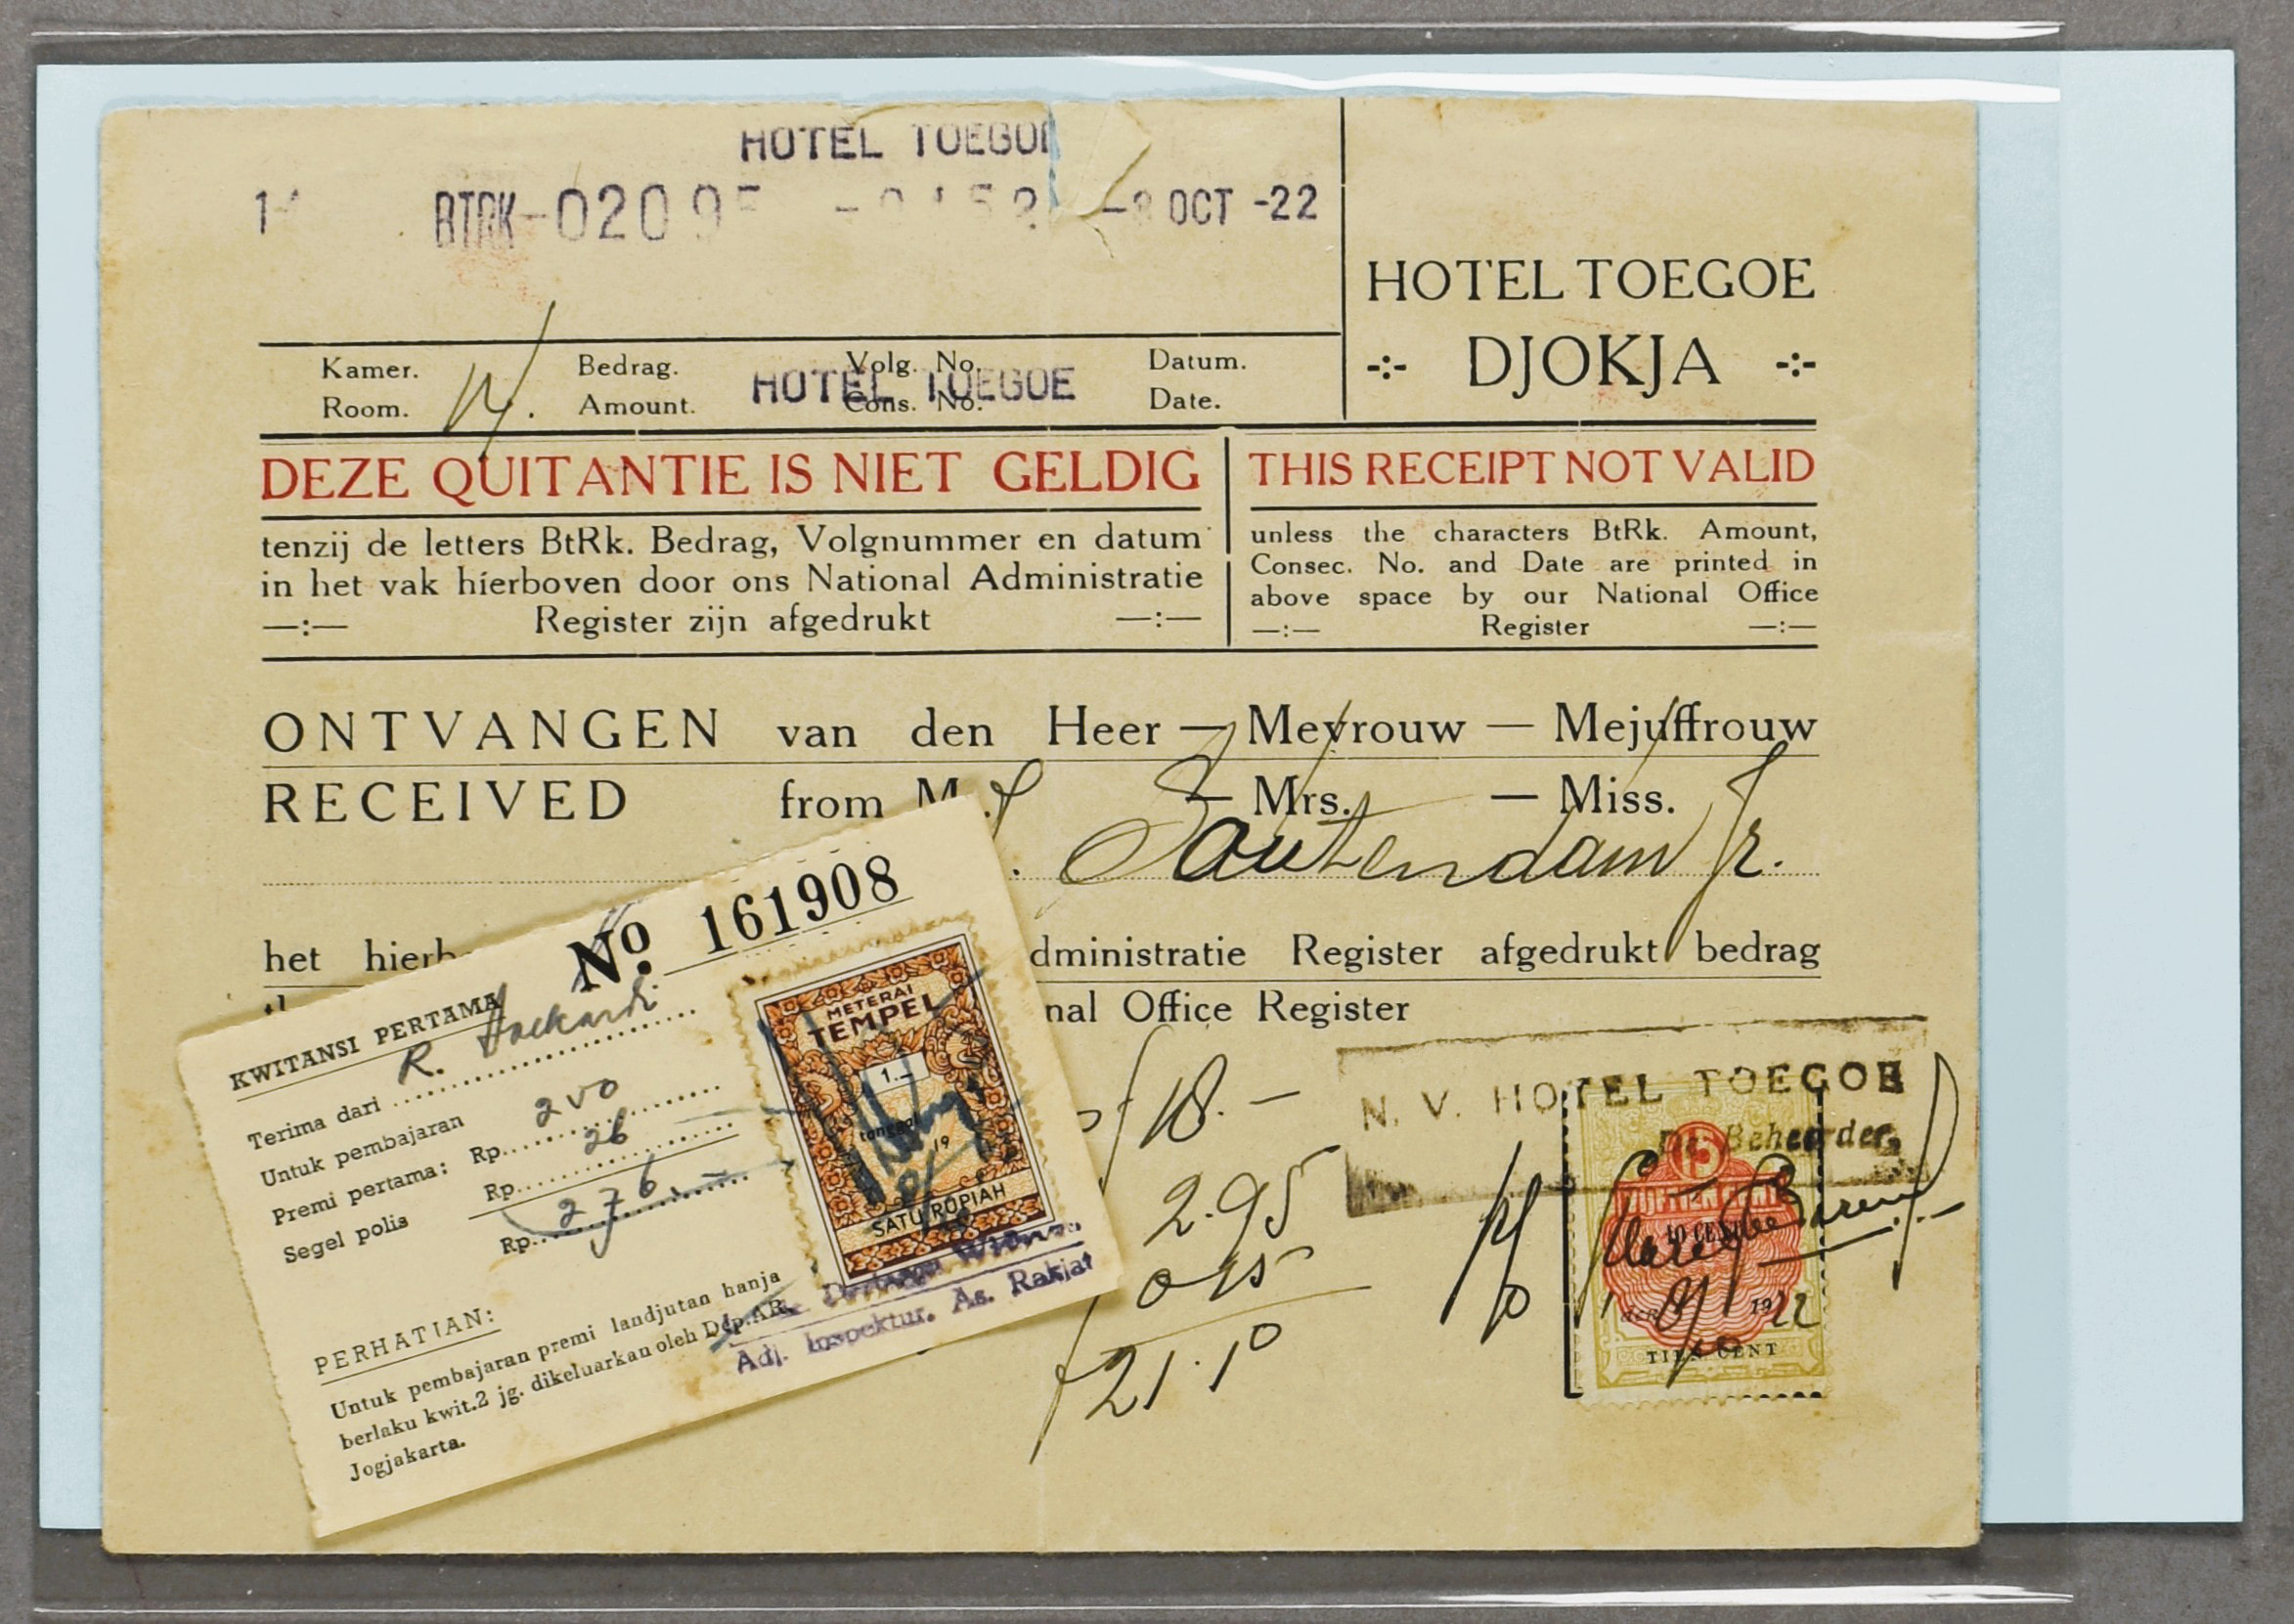 HOTEL TOEGOE
BTRK-0209 OCT -22
HOTEL TOEGOE
-:- DJOKJA -:-
Kamer. Bedrag. Volg. No. Datum.
Room. 14. Amount. Cons. No. Date.
HOTEL TOEGOE
DEZE QUITANTIE IS NIET GELDIG
tenzij de letters BtRk. Bedrag, Volgnummer en datum
in het vak hierboven door ons National Administratie
—:— Register zijn afgedrukt —:—
THIS RECEIPT NOT VALID
unless the characters BtRk. Amount,
Consec. No. and Date are printed in
above space by our National Office
—:— Register —:—
ONTVANGEN van den Heer — Mevrouw — Mejuffrouw
RECEIVED from M — Mrs. — Miss.
Soutendam Jr.
het dministratie Register afgedrukt bedrag
nal Office Register
f 18.—
2.95
0.15
f 21.10
N. V. HOTEL TOEGOE
De Beheerder,
15
10 CENT
8/10 1922
TIEN CENT
No 161908
KWITANSI PERTAMA
Terima dari R.
Untuk pembajaran
Premi pertama: Rp. 250
Segel polis Rp. 26
Rp. 276.-
METERAI
TEMPEL
1.—
tanggal
19
SATU RUPIAH
Adj. Inspektur. As. Rakjat
PERHATIAN:
Untuk pembajaran premi landjutan hanja
berlaku kwit.2 jg. dikeluarkan oleh Dep.AR.
Jogjakarta.